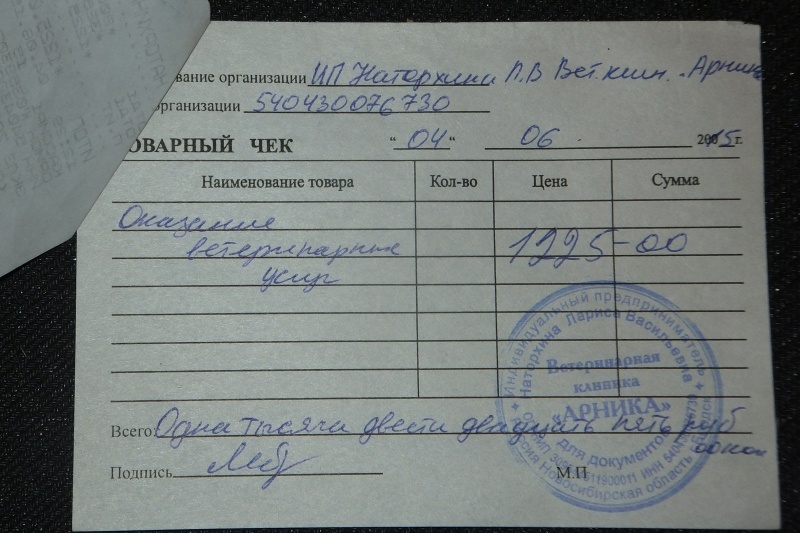 вание организации ИП Наторхина Л.В Вет.клин. "Арника
организации 540430076730
ОВАРНЫЙ ЧЕК "04" 06 2015г.
Наименование товара Кол-во Цена Сумма
Оказание
ветеринарных 1225-00
услуг
Индивидуальный предприниматель
Наторхина Лариса Васильевна
Ветеринарная
клиника
«АРНИКА»
для документов
Россия Новосибирская область
Всего Одна тысяча двести двадцать пять руб
Подпись М.П